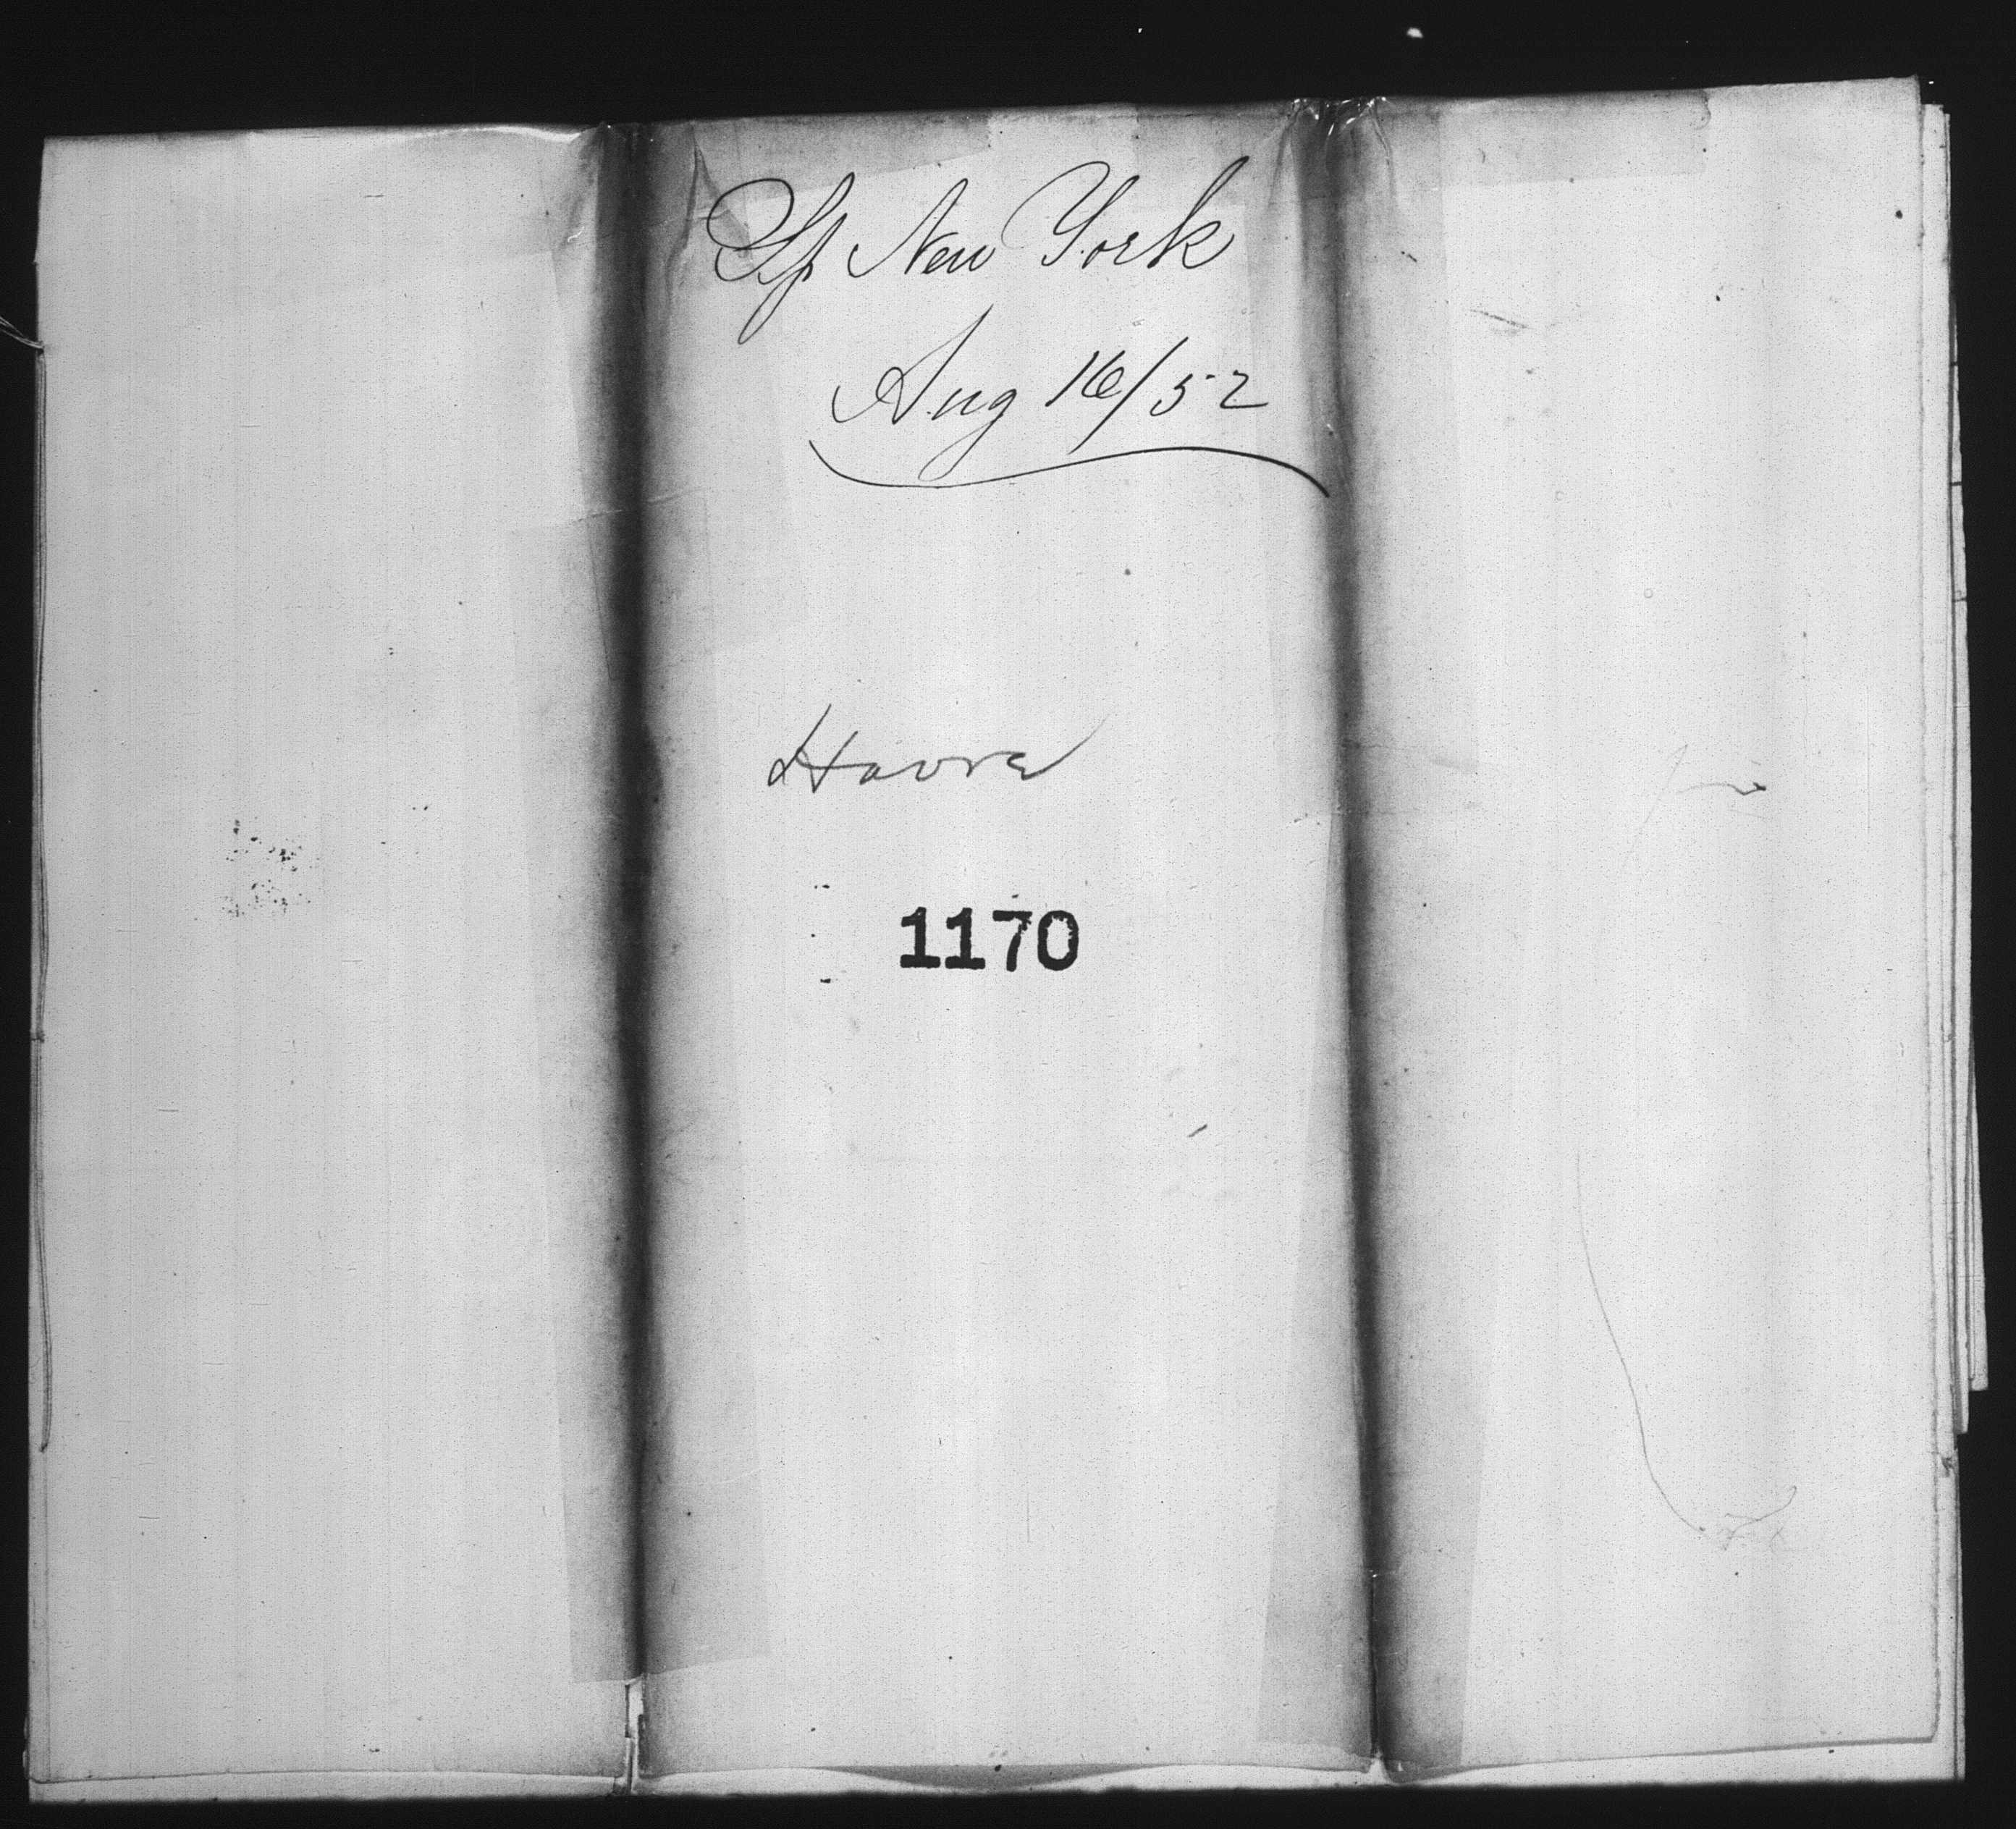 Sp New York
Aug 16/52
Havre
1170